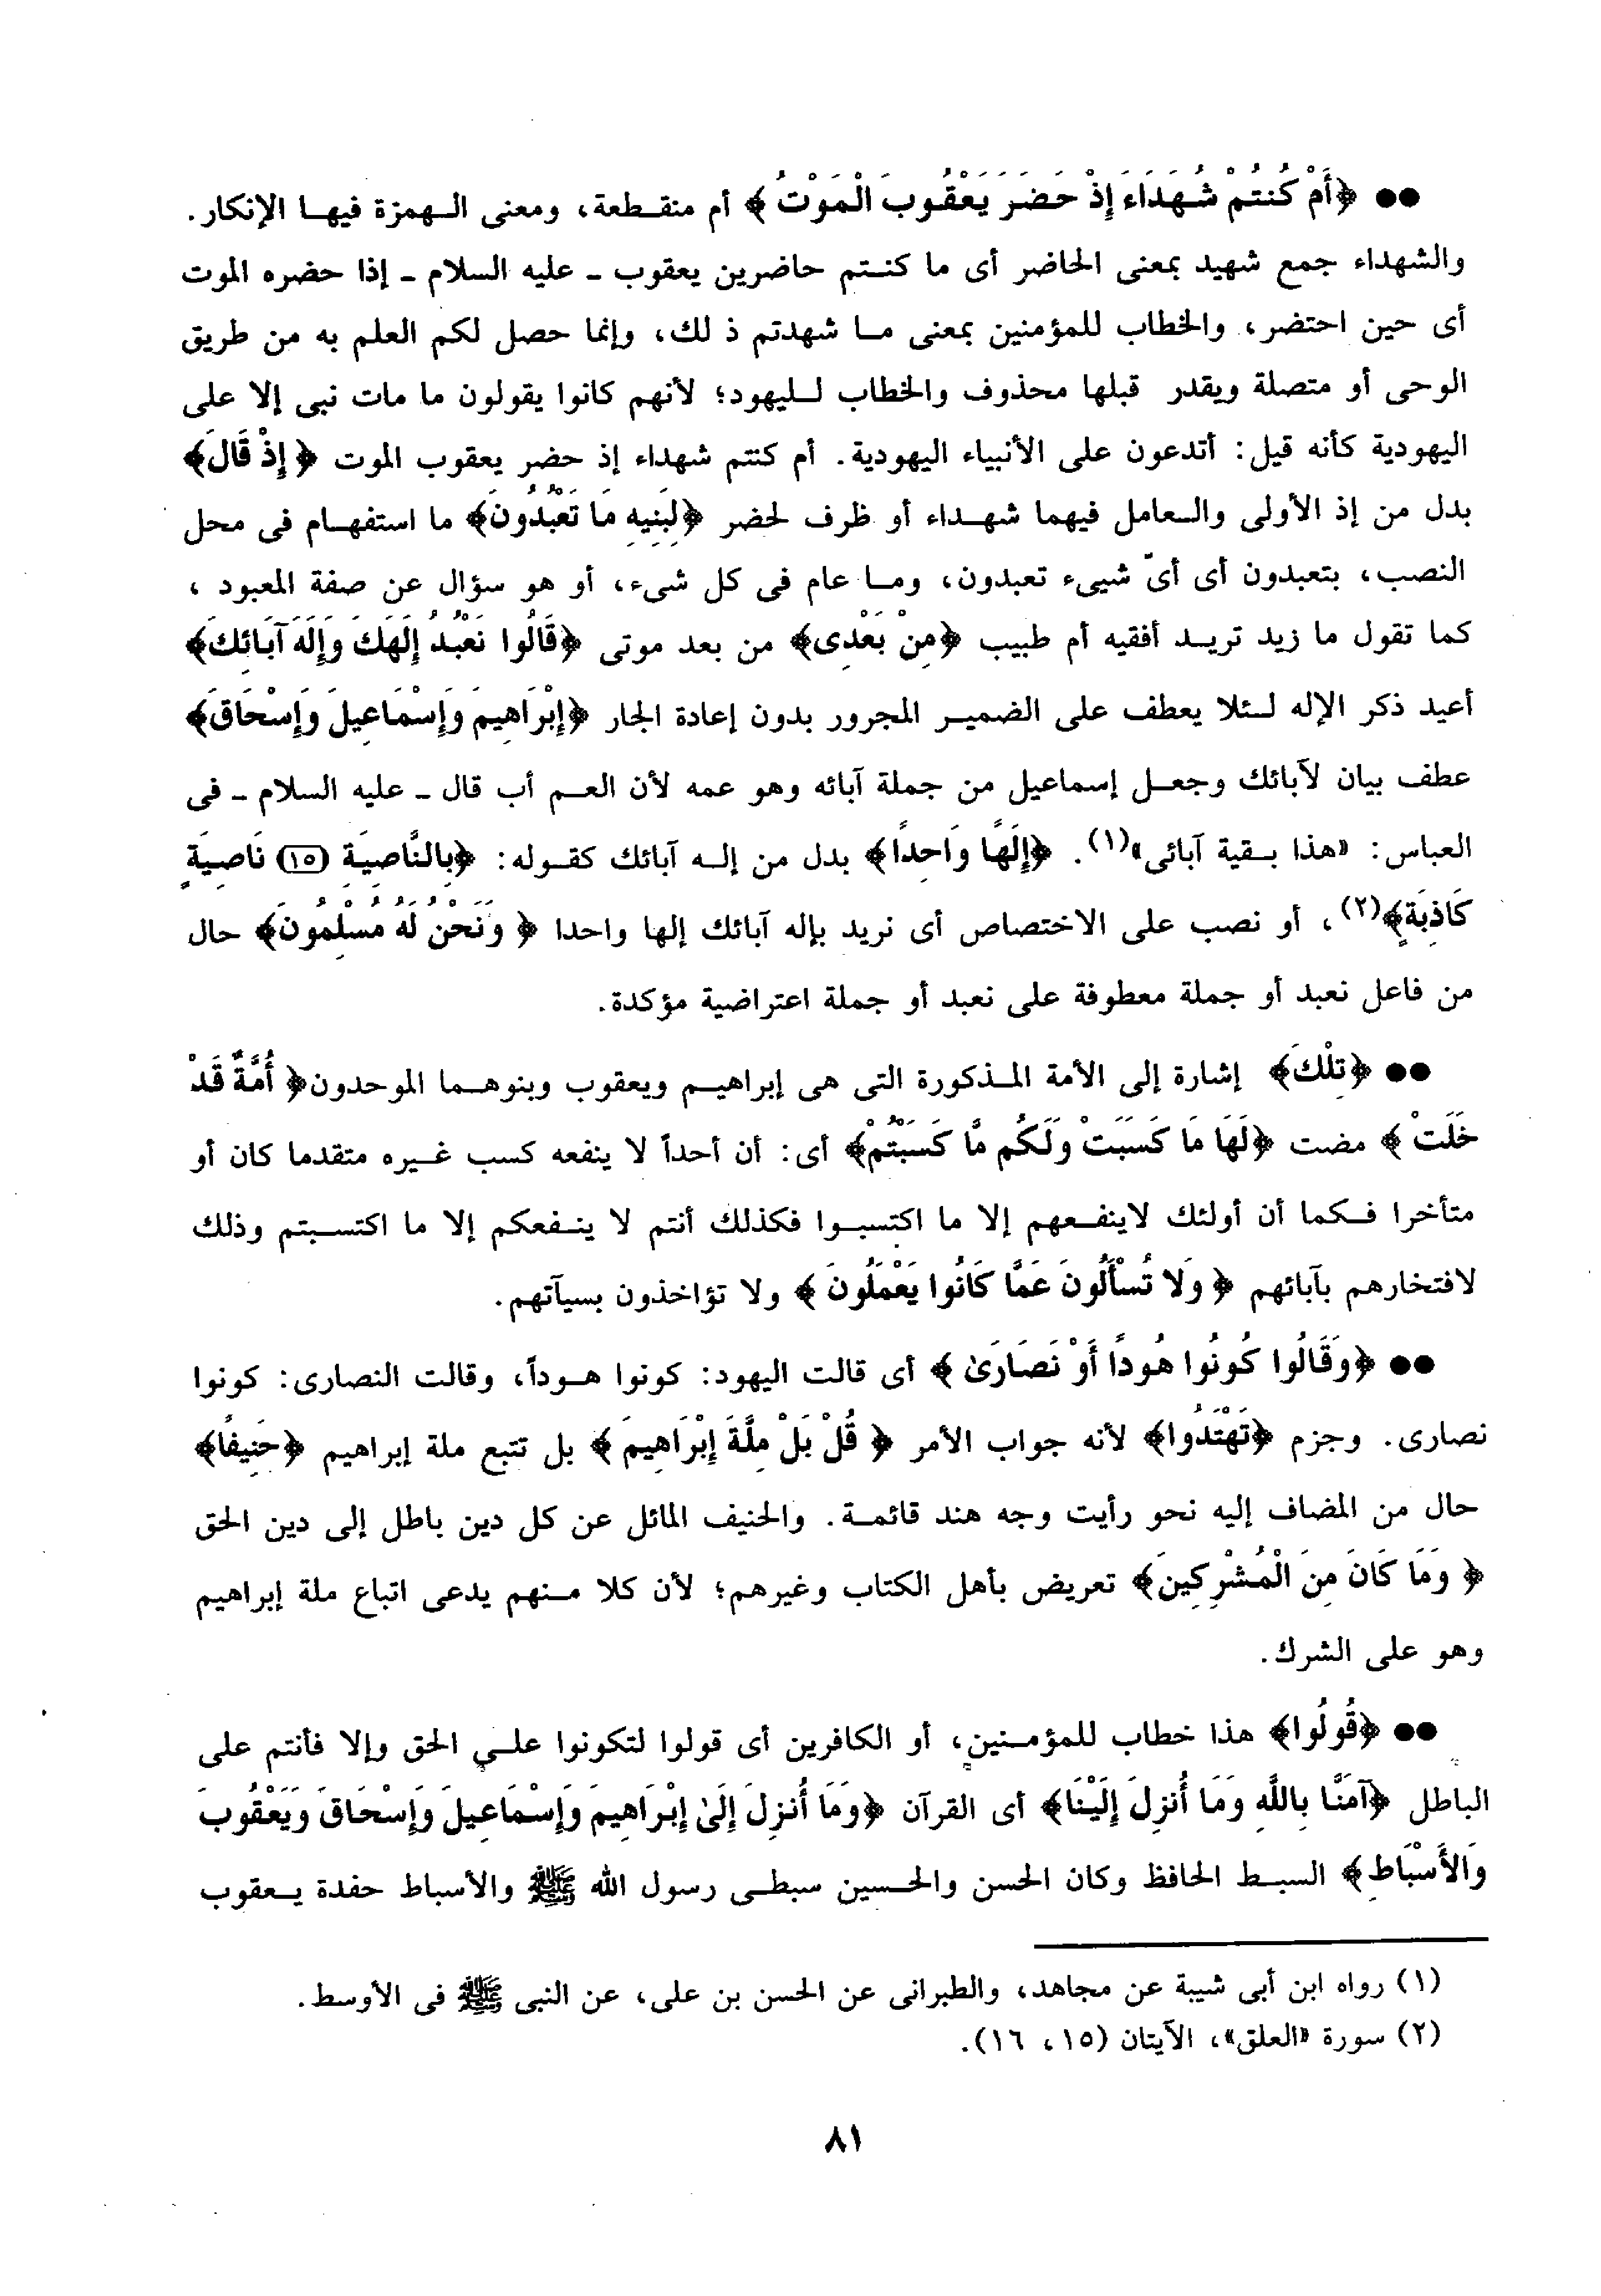 ●● ﴿أَمْ كُنتُمْ شُهَدَاءَ إِذْ حَضَرَ يَعْقُوبَ الْمَوْتُ﴾ أم منقطعة، ومعنى الهمزة فيها الإنكار.
والشهداء جمع شهيد بمعنى الحاضر أى ما كنتم حاضرين يعقوب ـ عليه السلام ـ إذا حضره الموت
أى حين احتضر، والخطاب للمؤمنين بمعنى ما شهدتم ذ لك، وإنما حصل لكم العلم به من طريق
الوحى أو متصلة ويقدر قبلها محذوف والخطاب لليهود؛ لأنهم كانوا يقولون ما مات نبى إلا على
اليهودية كأنه قيل: أتدعون على الأنبياء اليهودية. أم كنتم شهداء إذ حضر يعقوب الموت ﴿إِذْ قَالَ﴾
بدل من إذ الأولى والعامل فيهما شهداء أو ظرف لحضر ﴿لِبَنِيهِ مَا تَعْبُدُونَ﴾ ما استفهام فى محل
النصب، بتعبدون أى أىّ شيىء تعبدون، وما عام فى كل شىء، أو هو سؤال عن صفة المعبود ،
كما تقول ما زيد تريد أفقيه أم طبيب ﴿مِنْ بَعْدِى﴾ من بعد موتى ﴿قَالُوا نَعْبُدُ إِلَهَكَ وَإِلَهَ آبَائِكَ﴾
أعيد ذكر الإله لئلا يعطف على الضمير المجرور بدون إعادة الجار ﴿إِبْرَاهِيمَ وَإِسْمَاعِيلَ وَإِسْحَاقَ﴾
عطف بيان لآبائك وجعل إسماعيل من جملة آبائه وهو عمه لأن العم أب قال ـ عليه السلام ـ فى
العباس: «هذا بقية آبائى»(١). ﴿إِلَهًا وَاحِدًا﴾ بدل من إله آبائك كقوله: ﴿بِالنَّاصِيَةِ (١٥) نَاصِيَةٍ
كَاذِبَةٍ﴾(٢)، أو نصب على الاختصاص أى نريد بإله آبائك إلها واحدا ﴿وَنَحْنُ لَهُ مُسْلِمُونَ﴾ حال
من فاعل نعبد أو جملة معطوفة على نعبد أو جملة اعتراضية مؤكدة.
●● ﴿تِلْكَ﴾ إشارة إلى الأمة المذكورة التى هى إبراهيم ويعقوب وبنوهما الموحدون﴿أُمَّةٌ قَدْ
خَلَتْ﴾ مضت ﴿لَهَا مَا كَسَبَتْ وَلَكُم مَّا كَسَبْتُمْ﴾ أى: أن أحداً لا ينفعه كسب غيره متقدما كان أو
متأخرا فكما أن أولئك لاينفعهم إلا ما اكتسبوا فكذلك أنتم لا ينفعكم إلا ما اكتسبتم وذلك
لافتخارهم بآبائهم ﴿وَلا تُسْأَلُونَ عَمَّا كَانُوا يَعْمَلُونَ﴾ ولا تؤاخذون بسيآتهم.
●● ﴿وَقَالُوا كُونُوا هُودًا أَوْ نَصَارَىٰ﴾ أى قالت اليهود: كونوا هوداً، وقالت النصارى: كونوا
نصارى. وجزم ﴿تَهْتَدُوا﴾ لأنه جواب الأمر ﴿قُلْ بَلْ مِلَّةَ إِبْرَاهِيمَ﴾ بل تتبع ملة إبراهيم ﴿حَنِيفًا﴾
حال من المضاف إليه نحو رأيت وجه هند قائمة. والحنيف المائل عن كل دين باطل إلى دين الحق
﴿وَمَا كَانَ مِنَ الْمُشْرِكِينَ﴾ تعريض بأهل الكتاب وغيرهم؛ لأن كلا منهم يدعى اتباع ملة إبراهيم
وهو على الشرك.
●● ﴿قُولُوا﴾ هذا خطاب للمؤمنين، أو الكافرين أى قولوا لتكونوا على الحق وإلا فأنتم على
الباطل ﴿آمَنَّا بِاللَّهِ وَمَا أُنزِلَ إِلَيْنَا﴾ أى القرآن ﴿وَمَا أُنزِلَ إِلَىٰ إِبْرَاهِيمَ وَإِسْمَاعِيلَ وَإِسْحَاقَ وَيَعْقُوبَ
وَالأَسْبَاطِ﴾ السبط الحافظ وكان الحسن والحسين سبطى رسول الله ﷺ والأسباط حفدة يعقوب
(١) رواه ابن أبى شيبة عن مجاهد، والطبرانى عن الحسن بن على، عن النبى ﷺ فى الأوسط.
(٢) سورة «العلق»، الآيتان (١٥، ١٦).
٨١